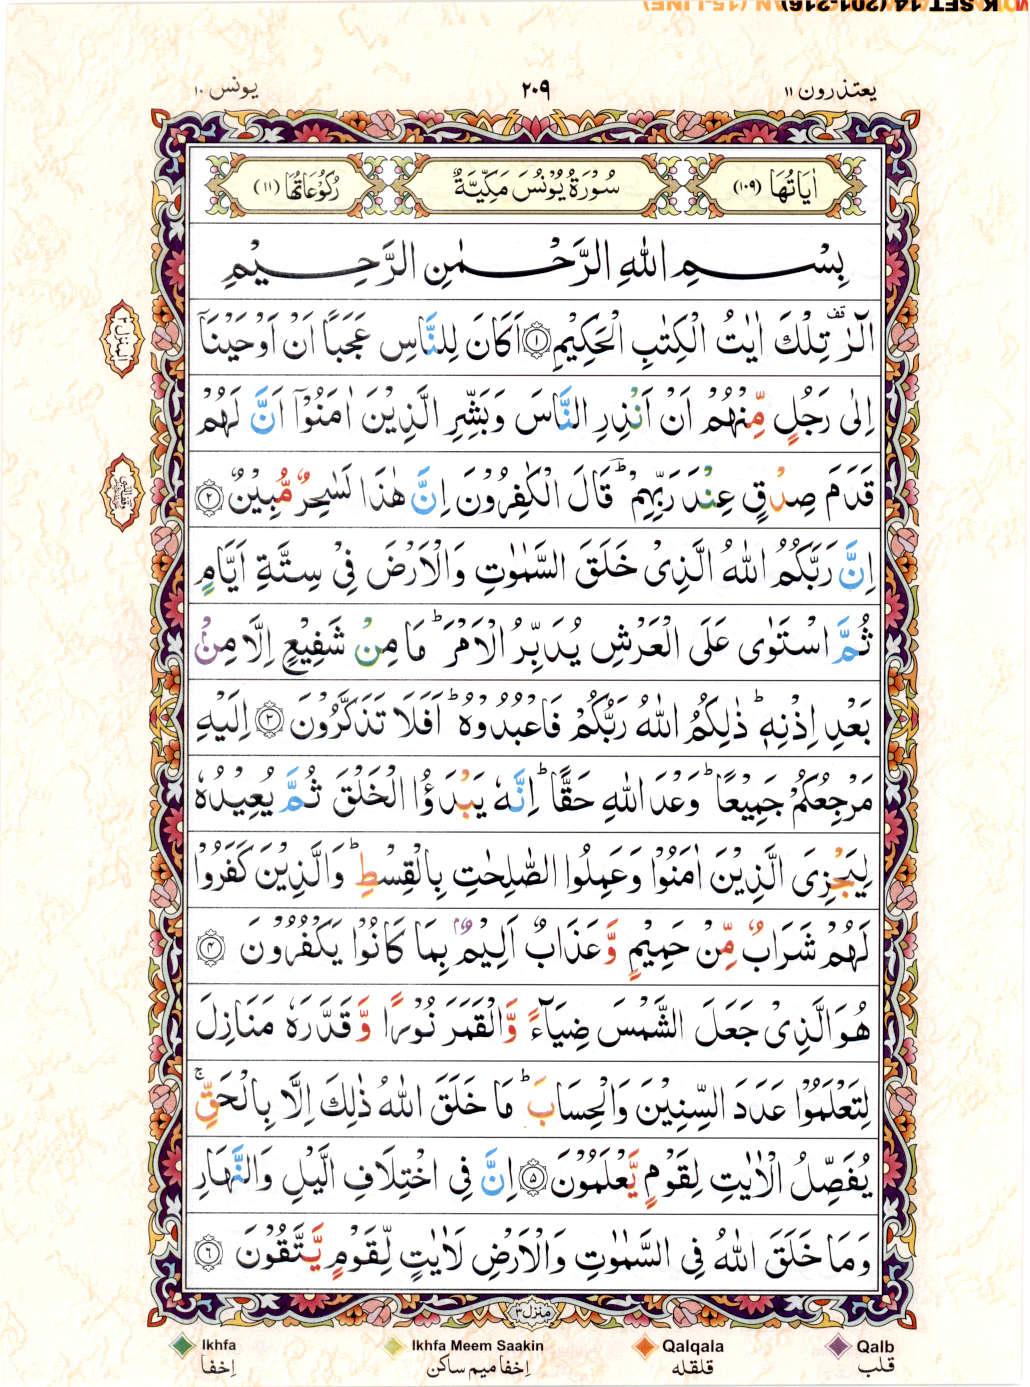 K SET 14 (201-216)
یعتذرون ۱۱
۲۰۹
یونس ۱۰
اٰیَاتُهَا (۱۰۹)
سُوْرَةُ یُوْنُسَ مَكِّیَّةٌ
رُكُوْعَاتُهَا (۱۱)
بِسْمِ اللّٰهِ الرَّحْمٰنِ الرَّحِیْمِ
الٓرٰ ۫ تِلْكَ اٰیٰتُ الْكِتٰبِ الْحَكِیْمِ ۝۱ اَكَانَ لِلنَّاسِ عَجَبًا اَنْ اَوْحَیْنَاۤ
اِلٰی رَجُلٍ مِّنْهُمْ اَنْ اَنْذِرِ النَّاسَ وَبَشِّرِ الَّذِیْنَ اٰمَنُوْۤا اَنَّ لَهُمْ
قَدَمَ صِدْقٍ عِنْدَ رَبِّهِمْ ؕ قَالَ الْكٰفِرُوْنَ اِنَّ هٰذَا لَسٰحِرٌ مُّبِیْنٌ ۝۲
اِنَّ رَبَّكُمُ اللّٰهُ الَّذِیْ خَلَقَ السَّمٰوٰتِ وَالْاَرْضَ فِیْ سِتَّةِ اَیَّامٍ
ثُمَّ اسْتَوٰی عَلَی الْعَرْشِ یُدَبِّرُ الْاَمْرَ ؕ مَا مِنْ شَفِیْعٍ اِلَّا مِنْۢ
بَعْدِ اِذْنِهٖ ؕ ذٰلِكُمُ اللّٰهُ رَبُّكُمْ فَاعْبُدُوْهُ ؕ اَفَلَا تَذَكَّرُوْنَ ۝۳ اِلَیْهِ
مَرْجِعُكُمْ جَمِیْعًا ؕ وَعْدَ اللّٰهِ حَقًّا ؕ اِنَّهٗ یَبْدَؤُا الْخَلْقَ ثُمَّ یُعِیْدُهٗ
لِیَجْزِیَ الَّذِیْنَ اٰمَنُوْا وَعَمِلُوا الصّٰلِحٰتِ بِالْقِسْطِ ؕ وَالَّذِیْنَ كَفَرُوْا
لَهُمْ شَرَابٌ مِّنْ حَمِیْمٍ وَّعَذَابٌ اَلِیْمٌۢ بِمَا كَانُوْا یَكْفُرُوْنَ ۝۴
هُوَ الَّذِیْ جَعَلَ الشَّمْسَ ضِیَآءً وَّالْقَمَرَ نُوْرًا وَّقَدَّرَهٗ مَنَازِلَ
لِتَعْلَمُوْا عَدَدَ السِّنِیْنَ وَالْحِسَابَ ؕ مَا خَلَقَ اللّٰهُ ذٰلِكَ اِلَّا بِالْحَقِّ ۚ
یُفَصِّلُ الْاٰیٰتِ لِقَوْمٍ یَّعْلَمُوْنَ ۝۵ اِنَّ فِی اخْتِلَافِ الَّیْلِ وَالنَّهَارِ
وَمَا خَلَقَ اللّٰهُ فِی السَّمٰوٰتِ وَالْاَرْضِ لَاٰیٰتٍ لِّقَوْمٍ یَّتَّقُوْنَ ۝۶
المنزل ۳
وقف النبی
منزل ۳
Ikhfa
اِخفا
Ikhfa Meem Saakin
اِخفا میم ساکن
Qalqala
قلقله
Qalb
قلب